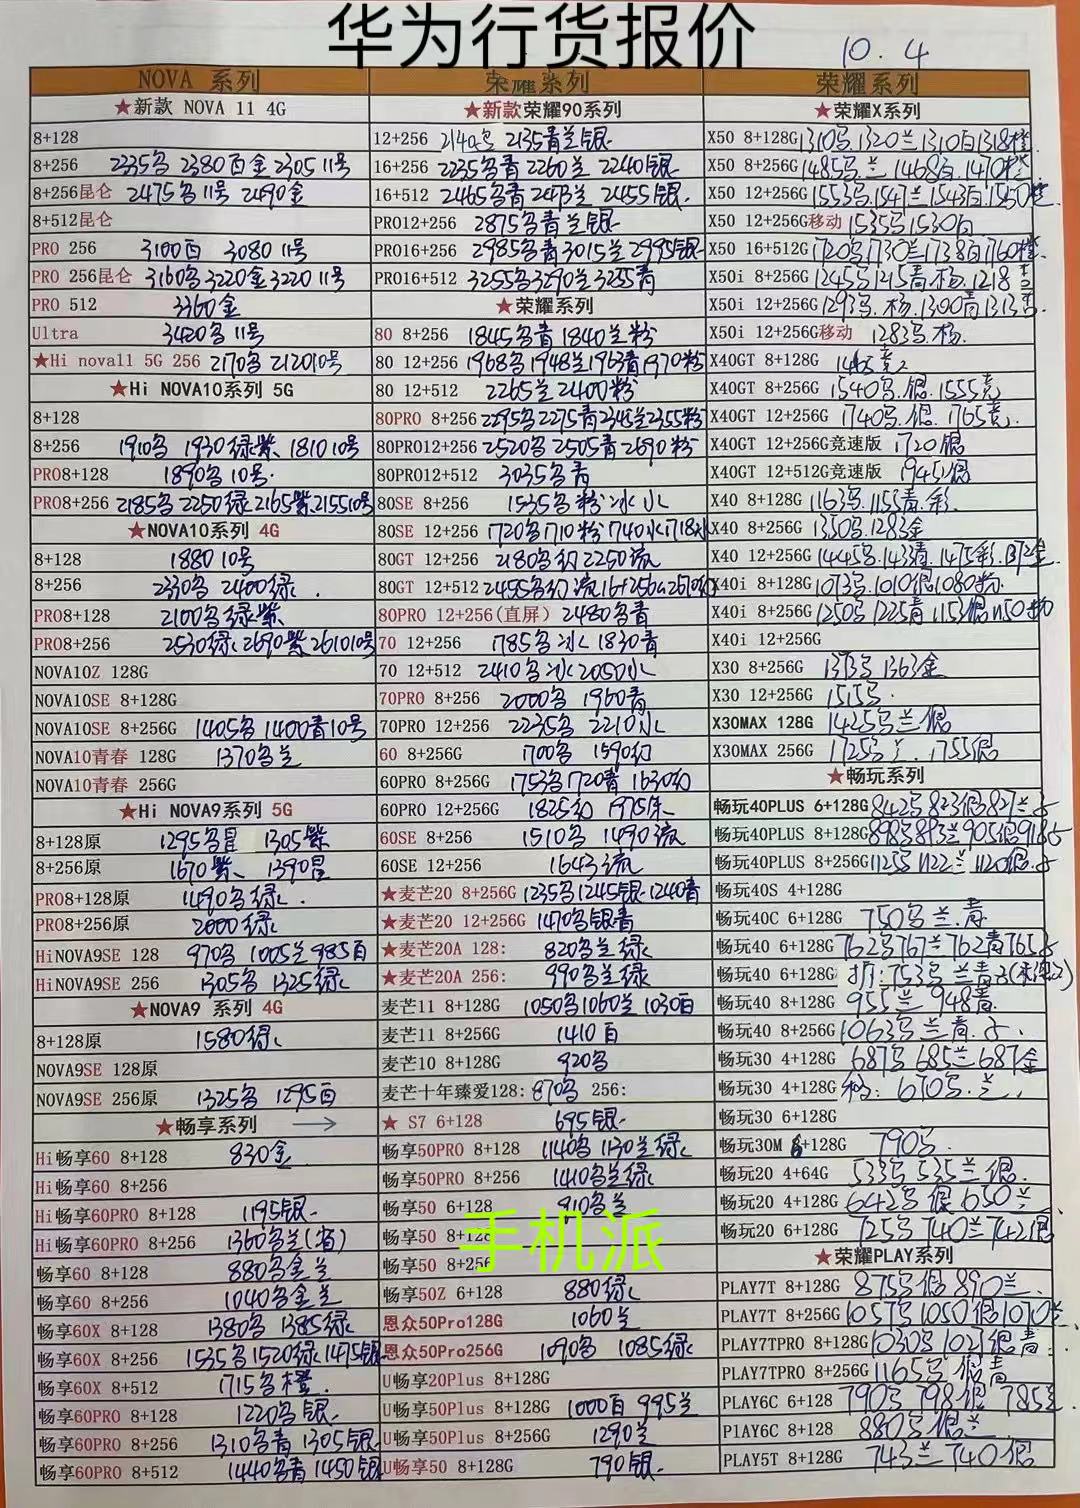 华为行货报价
10.4
NOVA 系列
★新款 NOVA 11 4G
8+128
8+256 2235名 2380百金 2305 11号
8+256昆仑 2475名11号 2490金
8+512昆仑
PRO 256 3100百 3080 11号
PRO 256昆仑 3160名3220金3220 11号
PRO 512 3360金
Ultra 3420名 11号
★Hi nova11 5G 256 2170名 2120 10号
★Hi NOVA10系列 5G
8+128
8+256 1910名 1930绿紫 1810 10号
PRO8+128 1890名 10号
PRO8+256 2185名 2250绿 2165紫 2155 10号
★NOVA10系列 4G
8+128 1880 10号
8+256 2330名 2400绿
PRO8+128 2100名绿紫
PRO8+256 2530绿 2690紫 2610 10号
NOVA10Z 128G
NOVA10SE 8+128G
NOVA10SE 8+256G 1405名 1400青10号
NOVA10青春 128G 1370名兰
NOVA10青春 256G
★Hi NOVA9系列 5G
8+128原 1295名 1305紫
8+256原 1670紫 1390
PRO8+128原 1490名绿
PRO8+256原 2000绿
HiNOVA9SE 128 970名 1005兰985百
HiNOVA9SE 256 1305名 1325绿
★NOVA9 系列 4G
8+128原 1580绿
NOVA9SE 128原
NOVA9SE 256原 1325名 1295百
★畅享系列 →
Hi畅享60 8+128 830金
Hi畅享60 8+256
Hi畅享60PRO 8+128 1195银
Hi畅享60PRO 8+256 1360名兰(省)
畅享60 8+128 880名金兰
畅享60 8+256 1040名金兰
畅享60X 8+128 1380名 1385绿
畅享60X 8+256 1535名1520绿1495银
畅享60X 8+512 1715名橙
畅享60PRO 8+128 1220名银
畅享60PRO 8+256 1310名青 1305银
畅享60PRO 8+512 1440名青1450银
荣耀系列
★新款荣耀90系列
12+256 2140名 2135青兰银
16+256 2235名青 2260兰 2240银
16+512 2465名青 兰 2455银
PRO12+256 2875名青兰银
PRO16+256 2985名青3015兰2995银
PRO16+512 3255名3290兰3255青
★荣耀系列
80 8+256 1845名青 1840兰粉
80 12+256 1968名1948兰1963青1970粉
80 12+512 2265兰 2400粉
80PRO 8+256 2295名2275青2345兰2355粉
80PRO12+256 2520名 2505青2690粉
80PRO12+512 3035名青
80SE 8+256 1535名粉冰水
80SE 12+256 1720名1710粉1740水1718冰
80GT 12+256 2180名幻2250流
80GT 12+512 2455名幻流16+256
80PRO 12+256(直屏) 2480名青
70 12+256 1785名冰 1830青
70 12+512 2410名冰2050水
70PRO 8+256 2000名 1960青
70PRO 12+256 2235名 2210水
60 8+256G 1700名 1590幻
60PRO 8+256G 1753名1720青 1630幻
60PRO 12+256G 1825幻 1975朱
60SE 8+256 1510名 1490流
60SE 12+256 1643流
★麦芒20 8+256G 1235名1245银1240青
★麦芒20 12+256G 1470名银青
★麦芒20A 128: 820名兰绿
★麦芒20A 256: 990名兰绿
麦芒11 8+128G 1050名1060兰 1030百
麦芒11 8+256G 1410百
麦芒10 8+128G 920名
麦芒十年臻爱128: 870名 256:
★ S7 6+128 695银
畅享50PRO 8+128 1140名 1130兰绿
畅享50PRO 8+256 1410名兰绿
畅享50 6+128 910名兰
畅享50 8+128
畅享50 8+256
手机派
畅享50Z 6+128 880绿
恩众50Pro128G 1060兰
恩众50Pro256G 1090名 1085绿
U畅享20Plus 8+128G
U畅享50Plus 8+128G 1000百 995兰
U畅享50Plus 8+256G 1290兰
U畅享50 8+128G 790银
荣耀系列
★荣耀X系列
X50 8+128G 1310名1320兰1310百1318橙
X50 8+256G 1485名.兰 1468百.1470橙
X50 12+256G 1553名.1547兰1543百1550橙
X50 12+256G移动 1535名1530百
X50 16+512G 1720名1730兰1738百1760橙
X50i 8+256G 1245名1215青.杨.1218
X50i 12+256G 1293名.杨.1300青1313
X50i 12+256G移动 1283名.杨.
X40GT 8+128G
X40GT 8+256G 1540名.银.1555竞
X40GT 12+256G 1740名.银.1765竞.
X40GT 12+256G竞速版 1720银
X40GT 12+512G竞速版 1945银
X40 8+128G 1163名.1155青.彩.
X40 8+256G 1350名.1283金
X40 12+256G 1445名.1433青.1475彩.1372金.
X40i 8+128G 1073名.1010银1080粉
X40i 8+256G 1250名1225青1153银1150粉
X40i 12+256G
X30 8+256G 1373名1363金
X30 12+256G 1515名.
X30MAX 128G 1425名兰银
X30MAX 256G 1725名兰.1755银
★畅玩系列
畅玩40PLUS 6+128G 842名823银827兰
畅玩40PLUS 8+128G 898名893兰905银918
畅玩40PLUS 8+256G 1125名1122兰1120银
畅玩40S 4+128G
畅玩40C 6+128G 750名兰.青
畅玩40 6+128G 762名767兰762青765
畅玩40 6+128G 折:753名兰青
畅玩40 8+128G 955兰 948青
畅玩40 8+256G 1063名兰青
畅玩30 4+128G 687名 685兰687金
畅玩30 4+128G 移:670名.兰
畅玩30 6+128G
畅玩30M 8+128G 790名.
畅玩20 4+64G 533名535兰银.
畅玩20 4+128G 642名银650兰
畅玩20 6+128G 725名740兰742银
★荣耀PLAY系列
PLAY7T 8+128G 875名银890兰
PLAY7T 8+256G 1057名1050银1070兰
PLAY7TPRO 8+128G 1030名1027银青
PLAY7TPRO 8+256G 1165名银青
PLAY6C 6+128 790名798银785兰
PlAY6C 8+128G 880名银兰
PLAY5T 8+128G 743兰740银